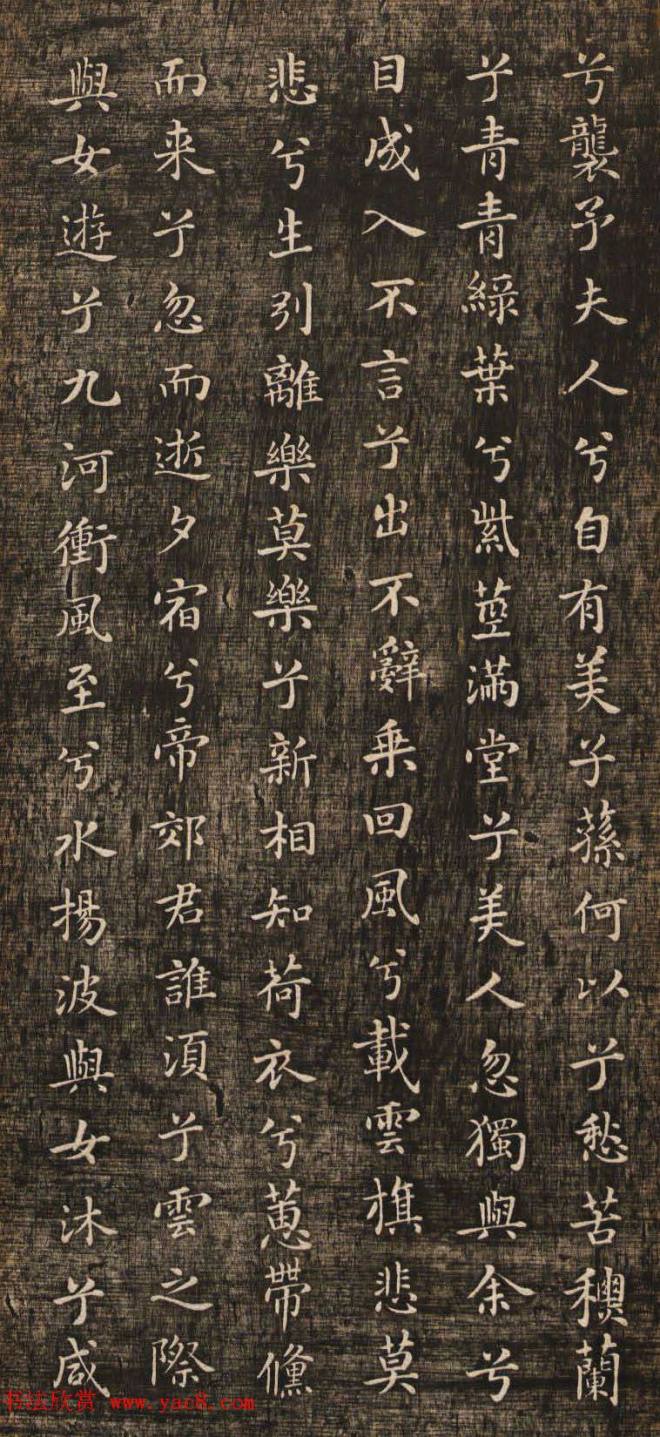 兮襲予夫人兮自有美子蓀何以兮愁苦穮蘭
兮青青綠葉兮紫莖滿堂兮美人忽獨與余兮
目成入不言兮出不辭乗回風兮載雲旗悲莫
悲兮生別離樂莫樂兮新相知荷衣兮蔥帶儵
而来兮忽而逝夕宿兮帝郊君誰湏兮雲之際
與女遊兮九河衝風至兮水揚波與女沐兮咸
书法欣赏 www.yac8.com